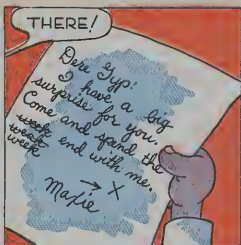 THERE!
Dere Gyp:
I have a big
surprise for you.
Come and spend the
week end with me.
weak
week
→ X
Mazie